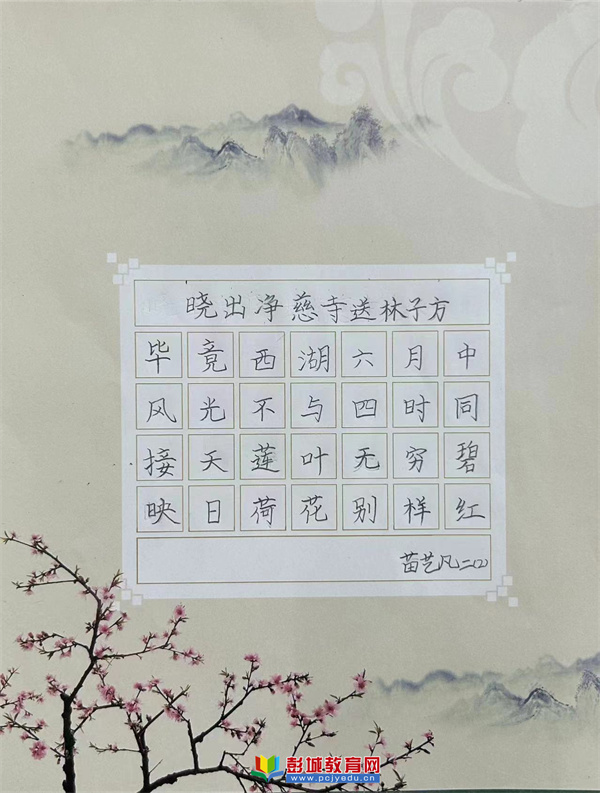 晓出净慈寺送林子方
毕竟西湖六月中
风光不与四时同
接天莲叶无穷碧
映日荷花别样红
苗艺凡二(2)
彭城教育网
www.pcjyedu.cn